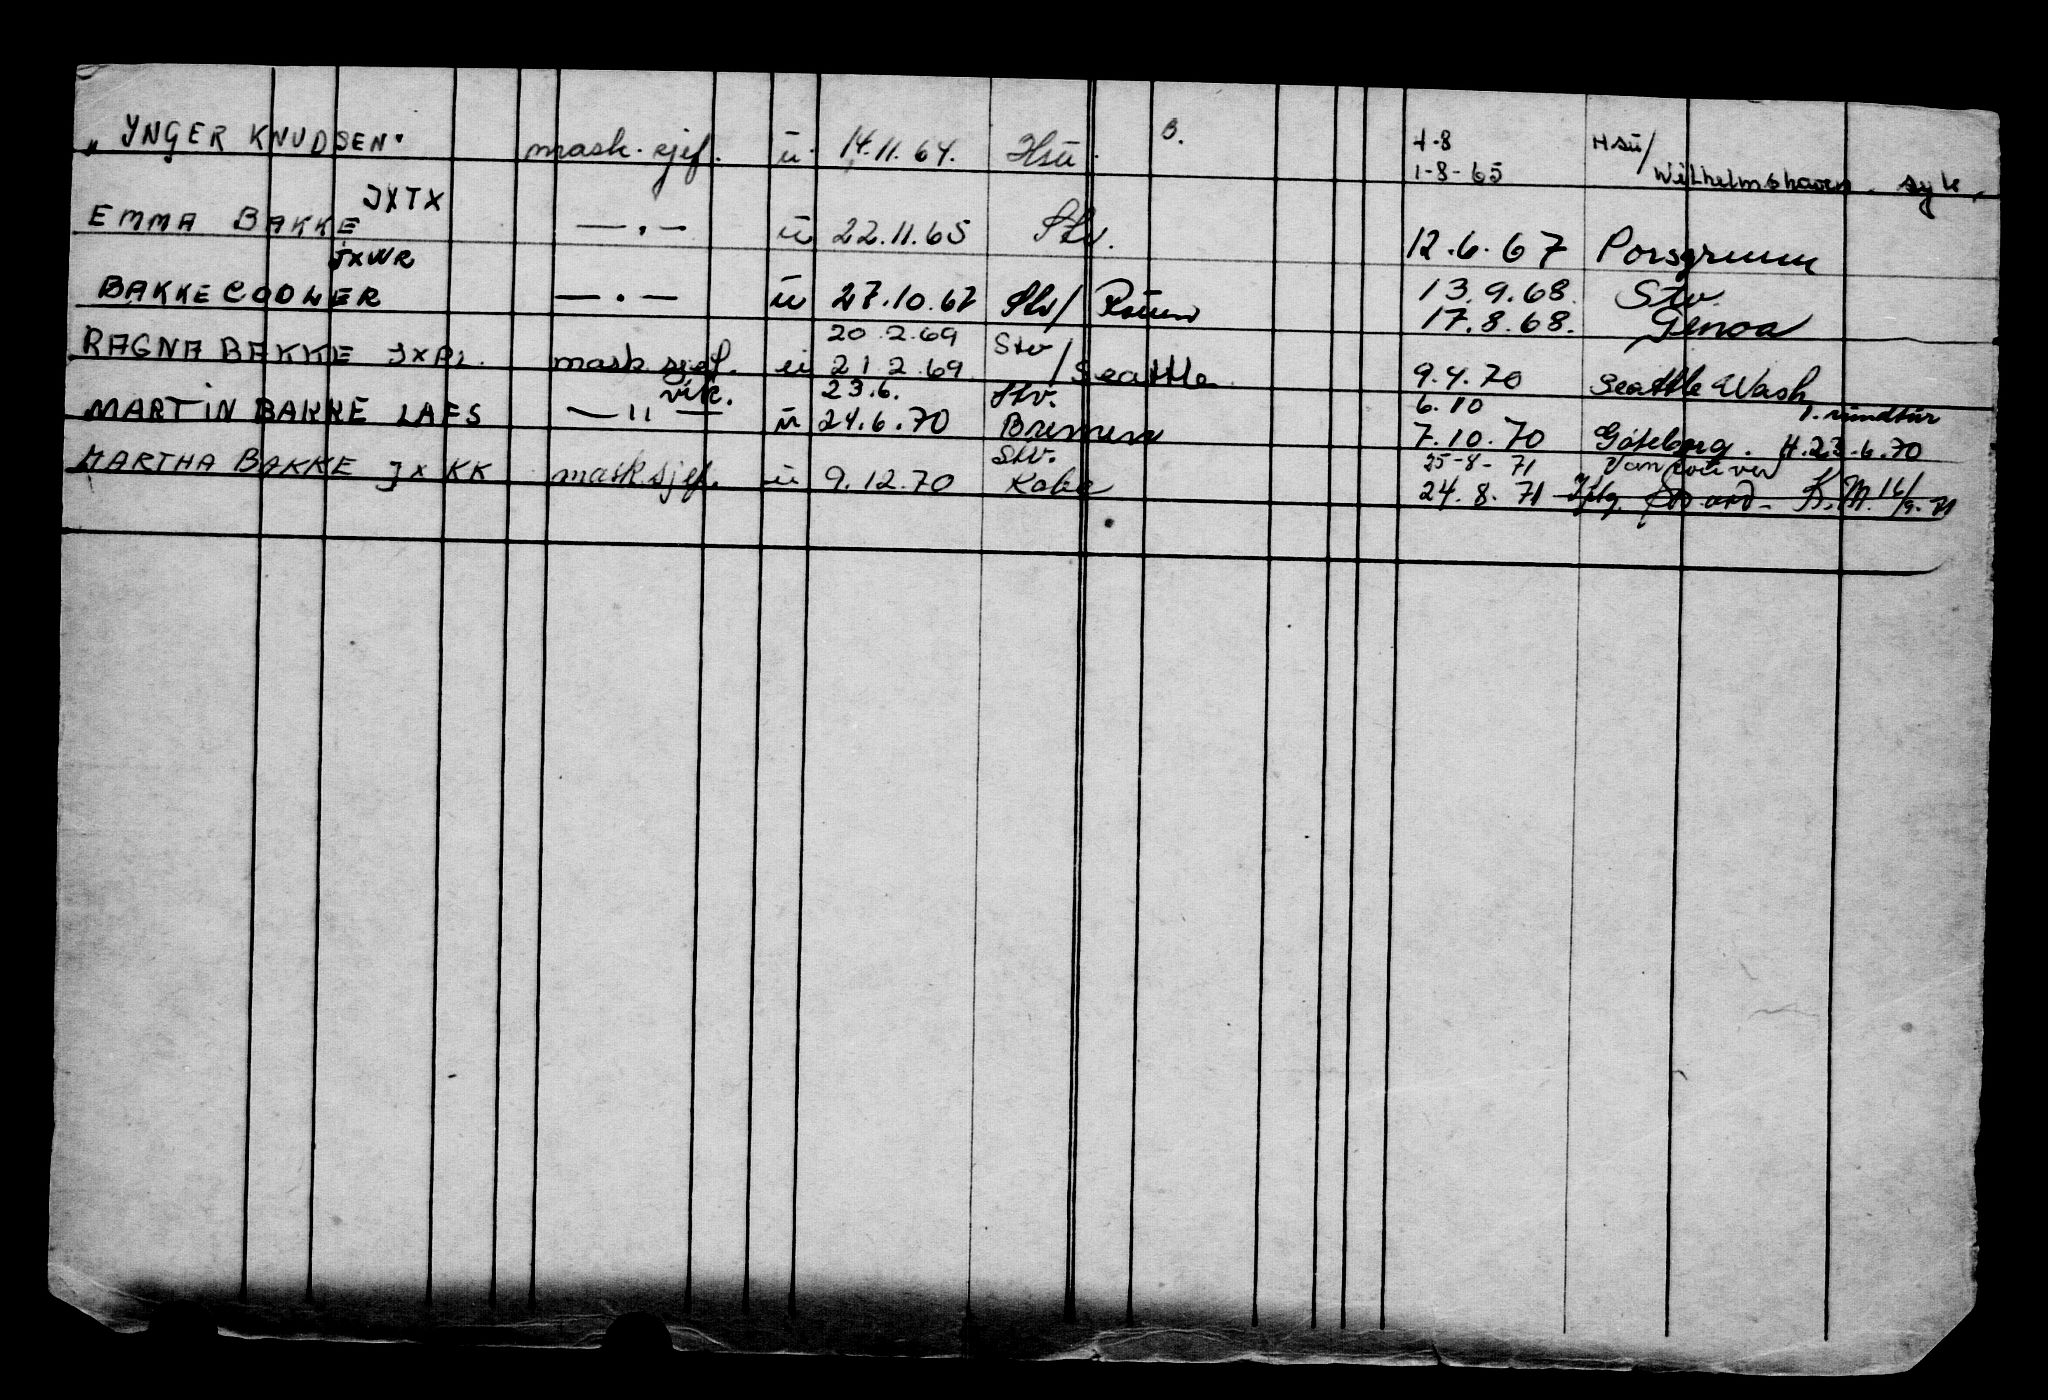 „YNGER KNUDSEN" mask. sjef. ü. 14.11.64. Hsü. B. 4-8 Hsü/
1-8-65 Wilhelmshaven. syk.
JXTX
EMMA BAKKE —.— ü 22.11.65 Stv. 12.6.67 Porsgrunn
JXWR
BAKKE COOLER —.— ü 27.10.67 Stv/ 13.9.68. Stv.
17.8.68. Genoa
20.2.69 Stv/
RAGNA BAKKE JXAL. mask sjef. ü 21.2.69 Seattle 9.4.70 Seattle Wash
vik. 23.6. Stv. 6.10 1. rundtur
MARTIN BAKKE LAES —"— ü 24.6.70 Bremen 7.10.70 Göteborg. H.23.6.70
Stv. 25-8-71 Vancouver
MARTHA BAKKE JXKK mask sjef. ü 9.12.70 Kobe 24.8.71 K.M. 16/9-71